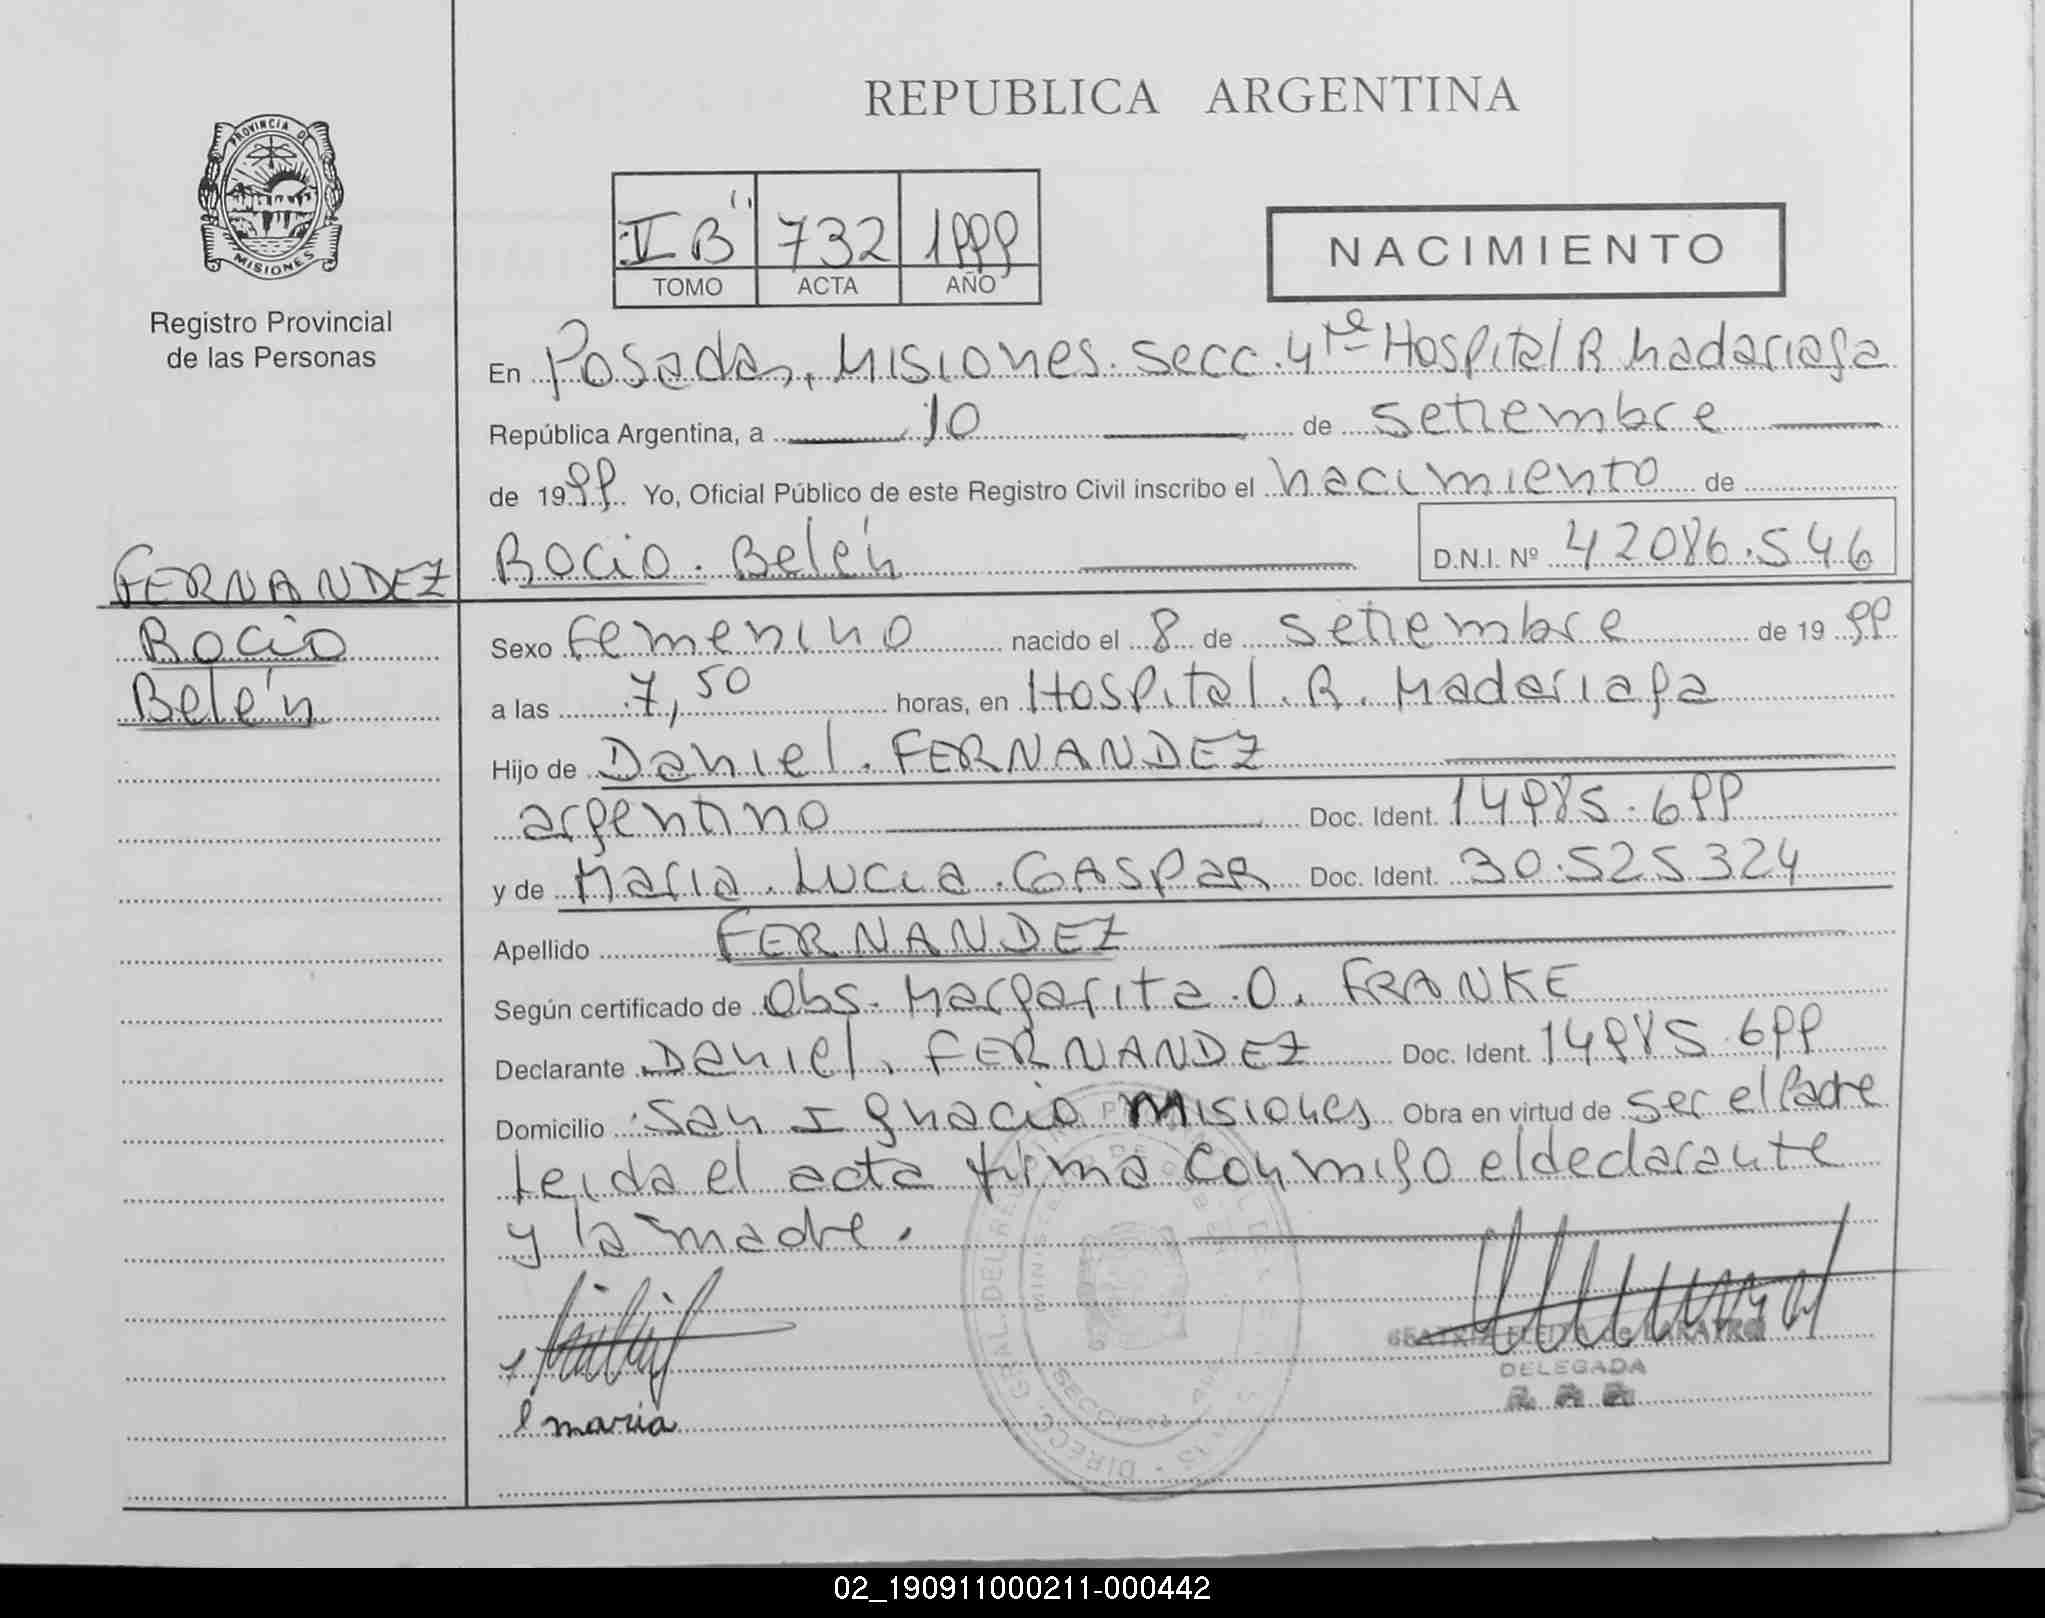 REPUBLICA ARGENTINA
PROVINCIA DE
MISIONES
Registro Provincial
de las Personas
732 1999
TOMO ACTA AÑO
NACIMIENTO
En Posadas, Misiones. Secc. 4ta Hospital R. Madariaga
República Argentina, a 10 de Setiembre
de 1999 Yo, Oficial Público de este Registro Civil inscribo el nacimiento de
Rocio. Belén D.N.I. Nº 42086.546
FERNANDEZ
Rocio
Belén
Sexo Femenino nacido el 8 de Setiembre de 1999
a las 7,50 horas, en Hospital. R. Madariaga
Hijo de Daniel. FERNANDEZ
argentino Doc. Ident. 14985.699
y de Maria. Lucia. GASPAR Doc. Ident. 30.525324
Apellido FERNANDEZ
Según certificado de Obs. Margarita. O. FRANKE
Declarante Daniel. FERNANDEZ Doc. Ident. 14985.699
Domicilio San Ignacio Misiones Obra en virtud de ser el Padre
Leida el acta firma conmigo el declarante
y la madre.
BEATRIZ
DELEGADA
maria
02_190911000211-000442